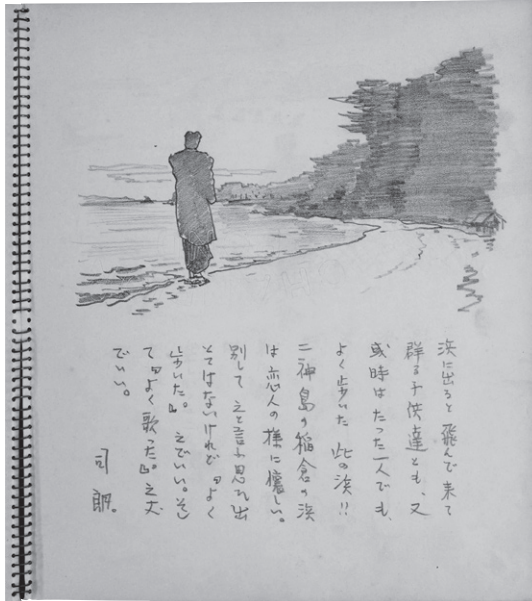 浜に出ると飛んで来て
群る子供達とも、又
或時はたった一人でも、
よく歩いた此の浜!!
二神島の稲倉の浜
は恋人の様に懐しい。
別して之と言ふ思れ出
とてはないけれど『よく
歩いた。』之でいい。そし
て『よく歌った』。之丈
でいい。
司朗。